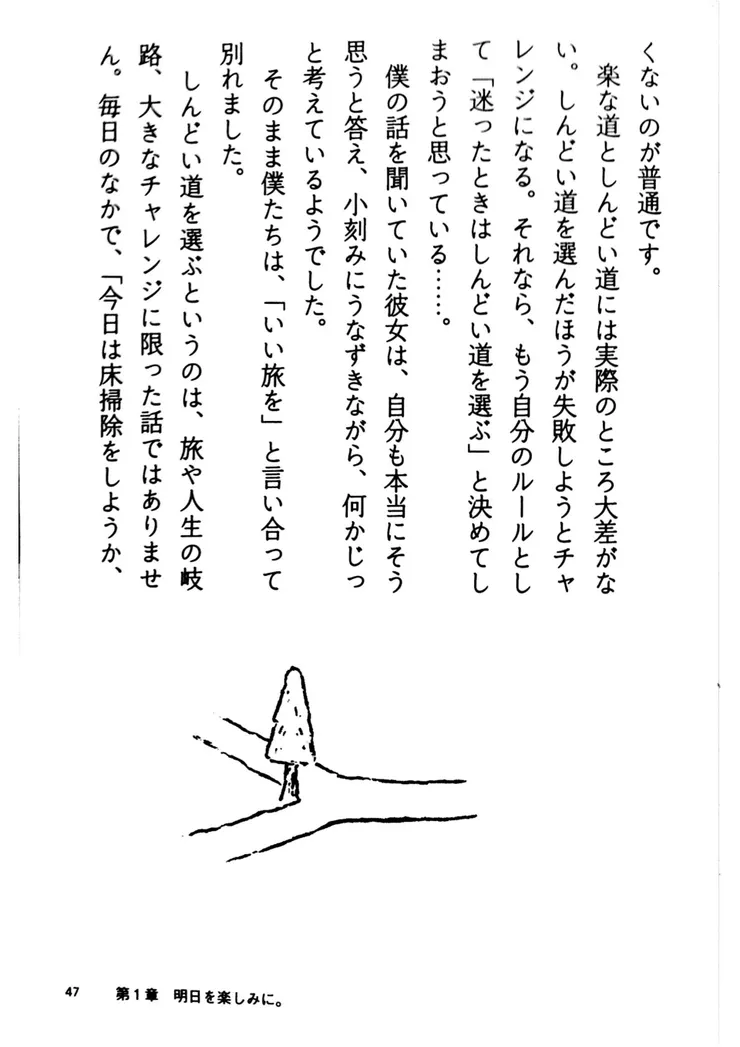 くないのが普通です。
　楽な道としんどい道には実際のところ大差がな
い。しんどい道を選んだほうが失敗しようとチャ
レンジになる。それなら、もう自分のルールとし
て「迷ったときはしんどい道を選ぶ」と決めてし
まおうと思っている……。
　僕の話を聞いていた彼女は、自分も本当にそう
思うと答え、小刻みにうなずきながら、何かじっ
と考えているようでした。
　そのまま僕たちは、「いい旅を」と言い合って
別れました。
　しんどい道を選ぶというのは、旅や人生の岐
路、大きなチャレンジに限った話ではありませ
ん。毎日のなかで、「今日は床掃除をしようか、
47　第1章　明日を楽しみに。